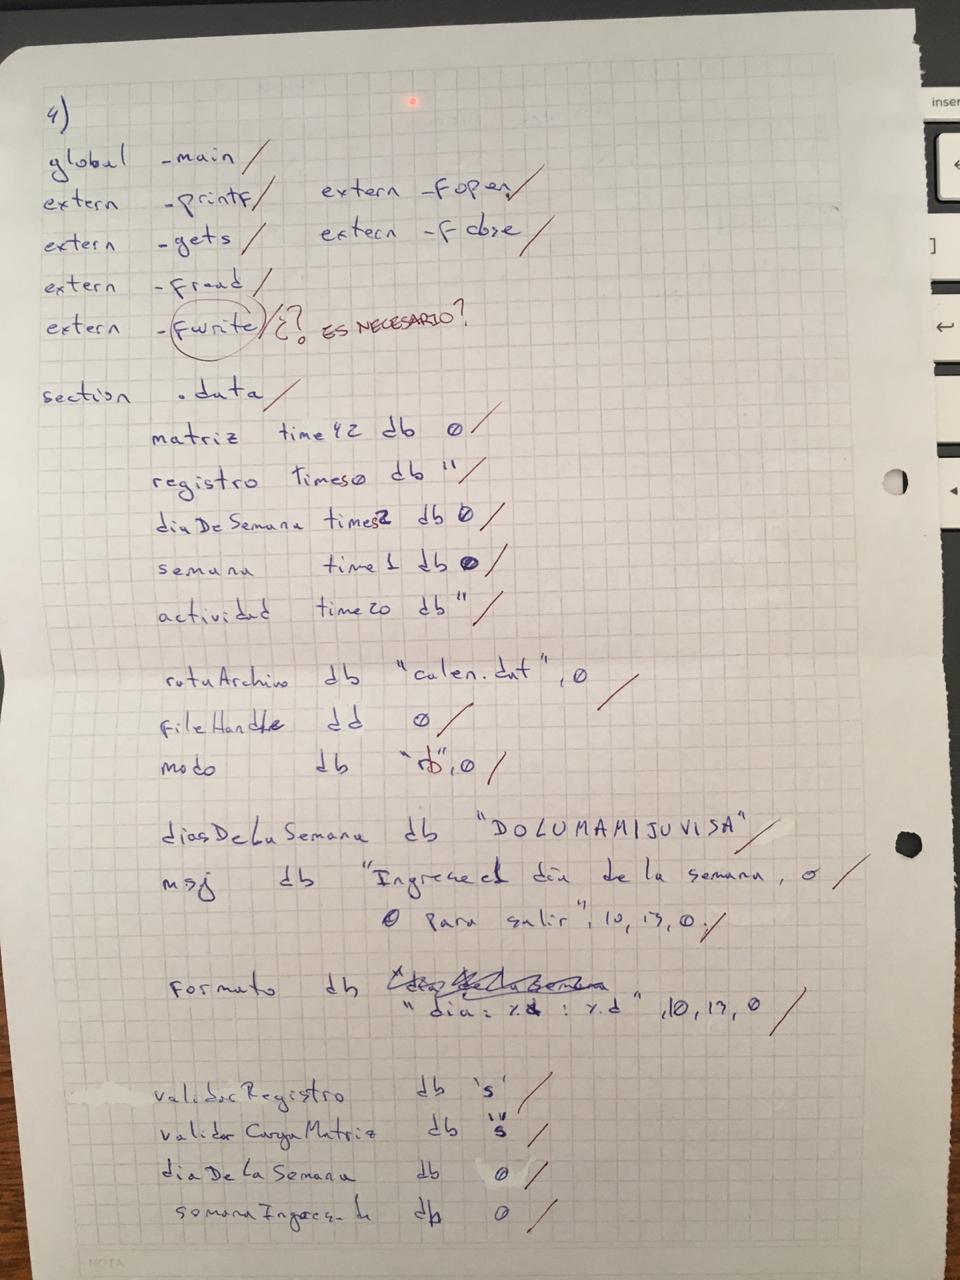 4)
global _main /
extern _printf / extern _fopen /
extern _gets / extern _fclose /
extern _fread /
extern _fwrite / ¿? ES NECESARIO?
section .data /
matriz time 42 db 0 /
registro times0 db " /
diaDeSemana times2 db 0 /
semana time 1 db 0 /
actividad time 20 db " /
rutaArchivo db "calen.dat", 0 /
fileHandle dd 0 /
modo db "rb", 0 /
diasDeLaSemana db "DOLUMAMIJUVISA" /
msj db "Ingrese el dia de la semana, o /
0 para salir", 10, 13, 0 /
formato db
"dia: %d : %d", 10, 13, 0 /
validarRegistro db 's' /
validarCargaMatriz db "s /
diaDeLaSemana db 0 /
db 0 /
NOTA
inser